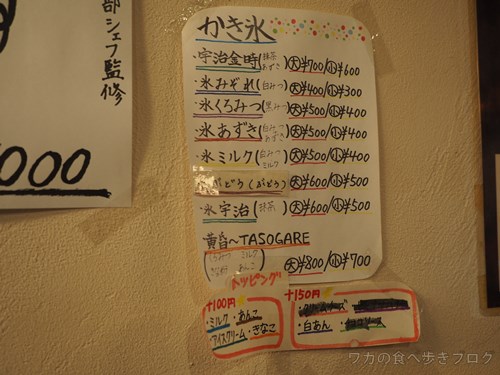 部シェフ監修
000
かき氷
・宇治金時(抹茶 あずき) 大¥700/小¥600
・氷みぞれ(白みつ) 大¥400/小¥300
・氷くろみつ(黒みつ) 大¥500/小¥400
・氷あずき(白みつ あずき) 大¥500/小¥400
・氷ミルク(白みつ ミルク) 大¥500/小¥400
ぶどう(ぶどう) 大¥600/小¥500
・氷宇治(抹茶) 大¥600/小¥500
黄昏〜TASOGARE
(くろみつ ミルク きなこ あんこ) 大¥800/小¥700
トッピング
+100円
・ミルク・あんこ
・アイスクリーム・きなこ
+150円
・白あん
ワカの食べ歩きブログ